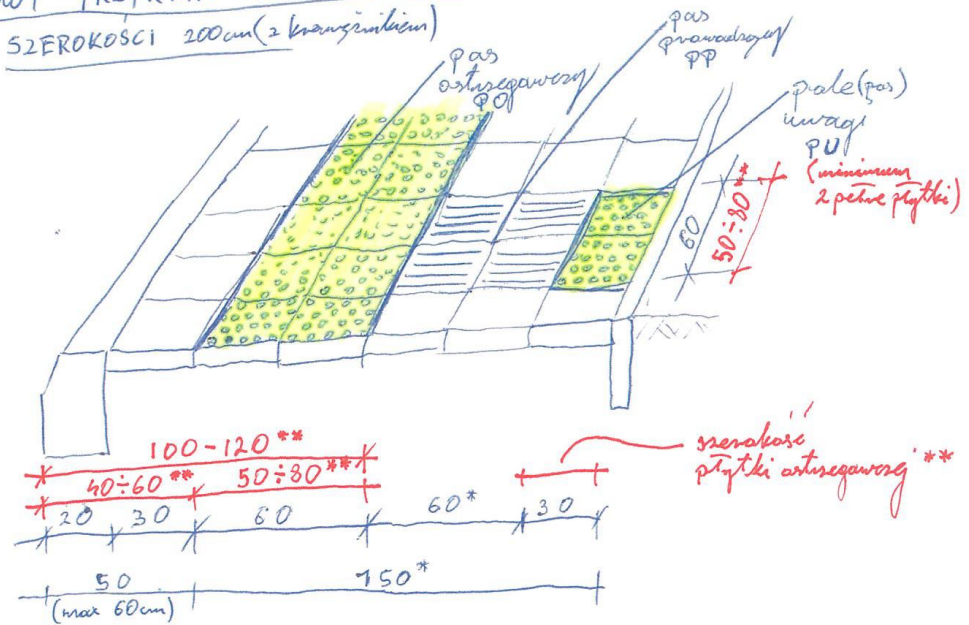 SZEROKOŚCI 200cm (z krawężnikiem)
pas
ostrzegawczy
PO
pas
prowadzący
PP
pole (pas)
uwagi
PU
(minimum
2 pełne płytki)
60
50÷80**
100-120**
40÷60** 50÷80**
szerokość
płytki ostrzegawczej **
20 30 60 60* 30
50 150*
(max 60cm)